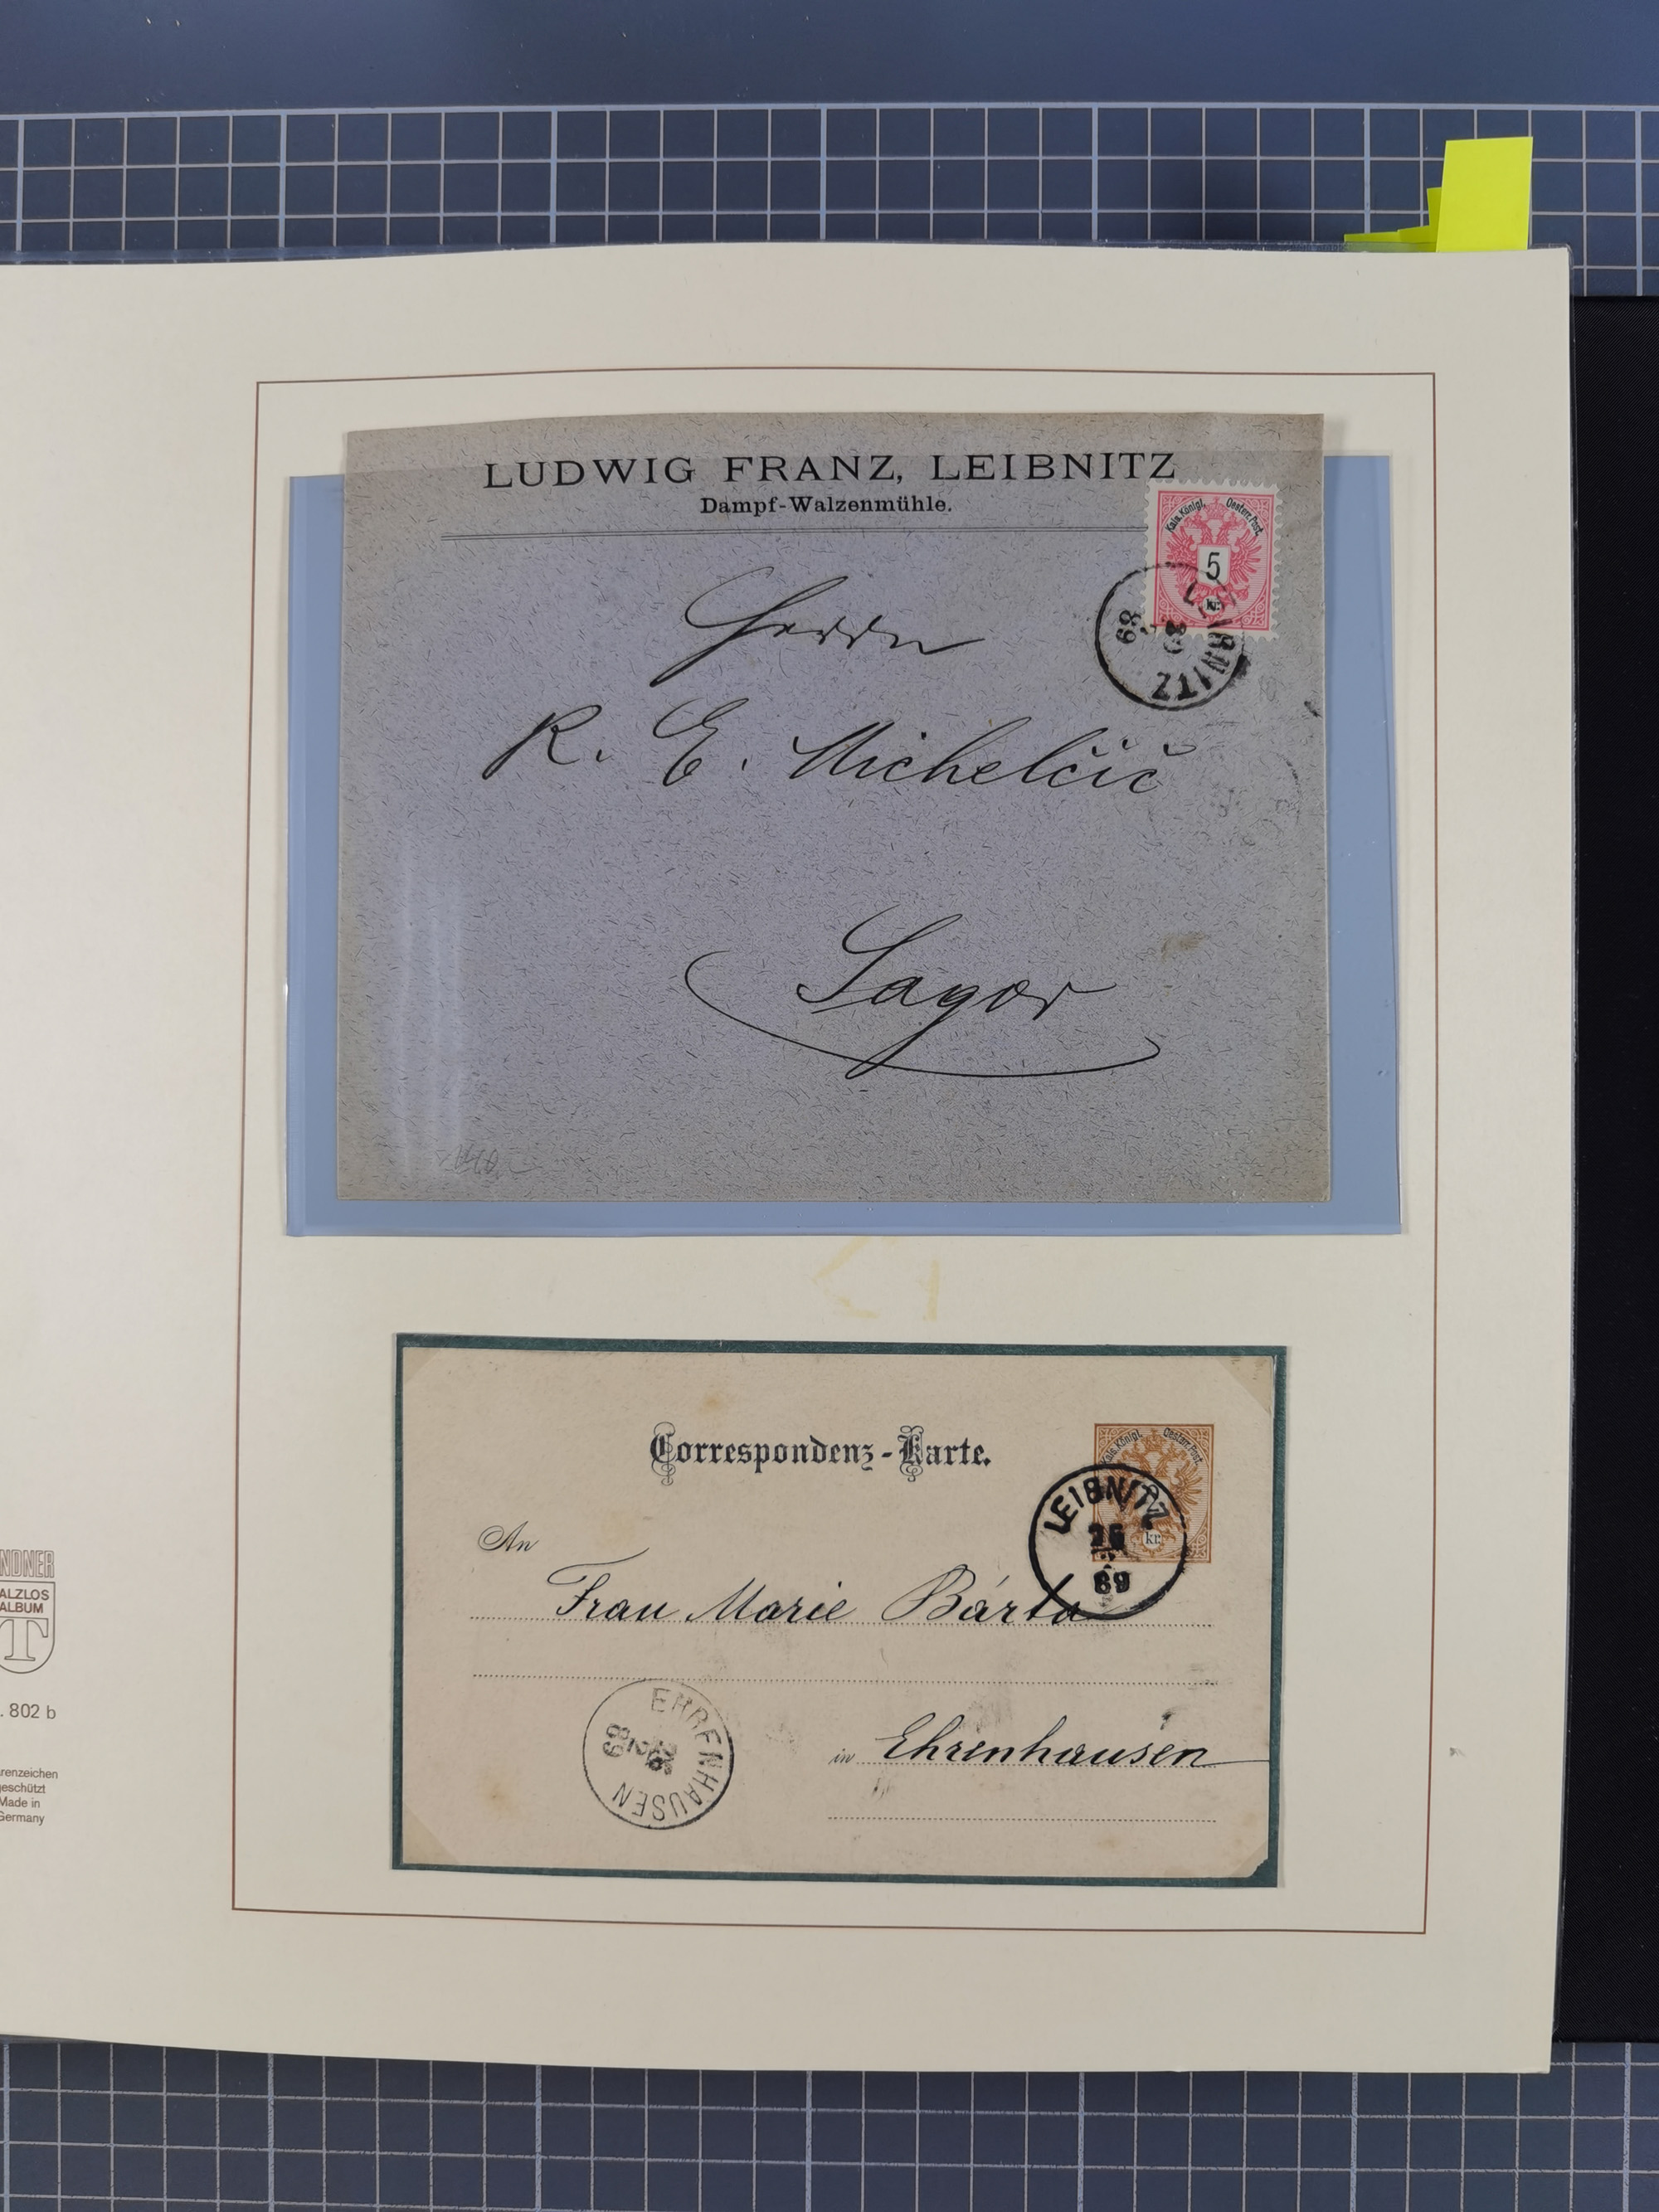 LUDWIG FRANZ, LEIBNITZ
Dampf-Walzenmühle.
Kais. Königl. Oesterr. Post.
5
kr.
LEIBNITZ
89
Herrn
R. E. Michelčič
Sagor
Correspondenz-Karte.
Kais. Königl. Oesterr. Post.
2
kr.
LEIBNITZ
89
An
Frau Marie Bárta
EHRENHAUSEN
89
in Ehrenhausen
NDNER
ALZLOS
ALBUM
T
. 802 b
renzeichen
geschützt
Made in
Germany